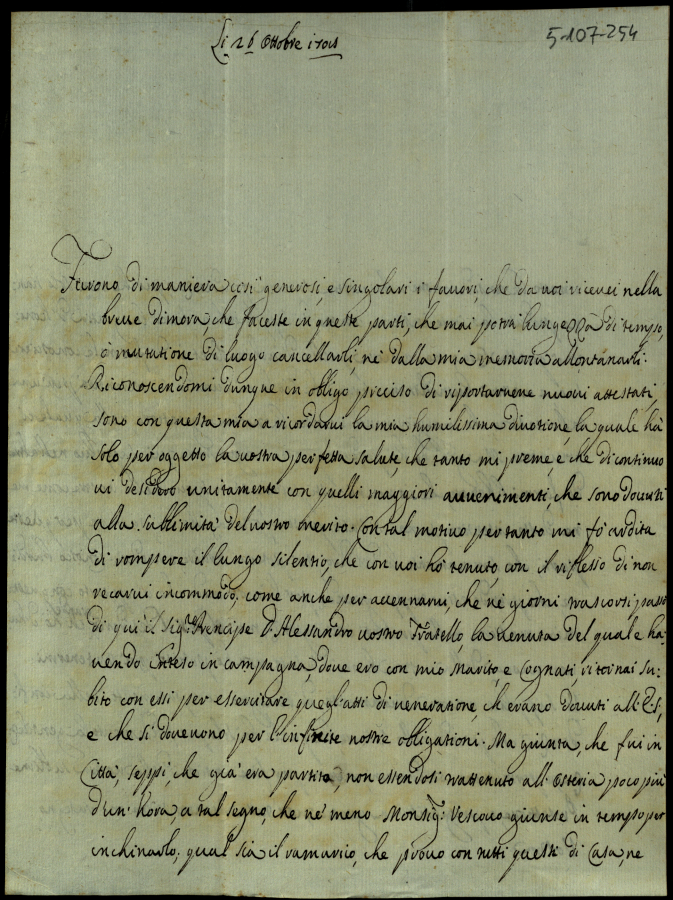 Li 26 Ottobre
5-107-254
Furono di maniera così generosi, e singolari i fauori, che da uoi riceuei nella
breue dimora, che faceste in queste parti, che mai potrà lungezza di tempo,
ò mutatione di luogo cancellarli, nè dalla mia memoria allontanarli.
Riconoscendomi dunque in obligo preciso di riportaruene nuoui attestati,
sono con questa mia a ricordarui la mia humilissima diuotione, la quale hà
solo per oggetto la uostra perfetta salute, che tanto mi preme, e che di continuo
ui desidero unitamente con quelli maggiori auuenimenti, che sono douuti
alla sublimità del uostro merito. Con tal motiuo per tanto mi fò ardita
di rompere il lungo silentio, che con uoi hò tenuto, con il riflesso di non
recarui incommodo; come anche per accennarui, che nè giorni trascorsi passò
di qui il Sig.r Prencipe D. Alessandro uostro Fratello, la uenuta del quale ha-
uendo inteso in campagna, doue ero con mio Marito, e Cognati, ritornai su-
bito con essi per essercitare quegl'atti di ueneratione, ch'erano douuti all'E.S.,
e che si doueuono per l'infinite nostre obligationi. Ma giunta, che fui in
Città, seppi, che già era partito, non essendosi trattenuto all'Osteria poco più
d'un'hora, a tal segno, che nè meno Monsig.r Vescouo giunse in tempo per
inchinarlo; qual sia il ramarico, che prouo con tutti questi di Casa, ne